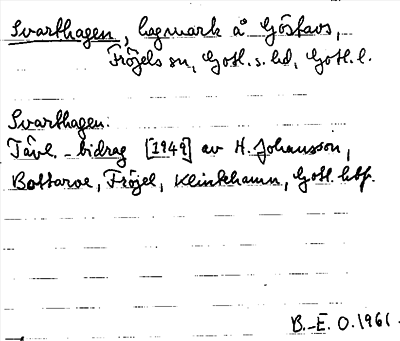 Svarthagen, hagmark å Göstavs,
Fröjels sn, Gotl. s. hd, Gotl. l.
Svarthagen:
Tävl.-bidrag [1949] av H. Johansson,
Bottarve, Fröjel, Klintehamn, Gotl.
B.-E. O. 1961.